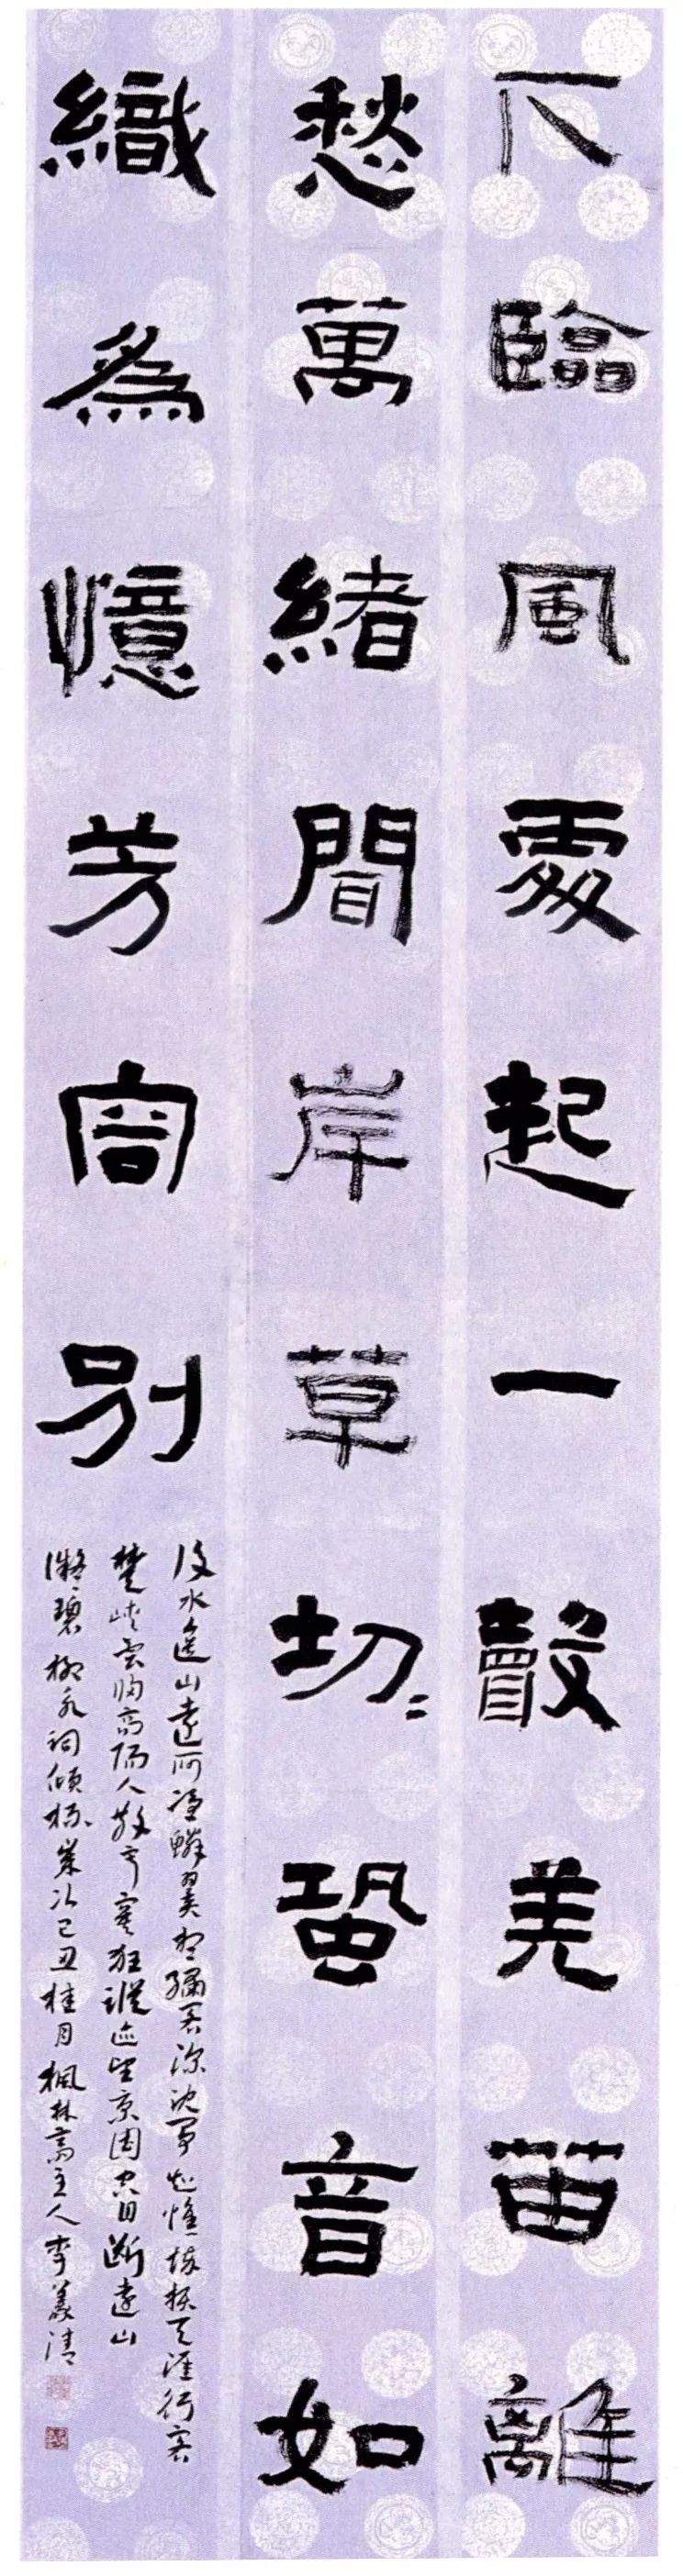 下臨風處起一聲羌笛離
愁萬緒聞岸草切〻蛩音如
織為憶芳容別
後水遙山遠何憑鱗翼想繡閣深沈爭知憔悴損天涯行客
楚峽雲歸高陽人散寂寞狂蹤迹望京國空目斷遠山
凝碧柳永詞傾杯歲次己丑桂月楓林齋主人李義清